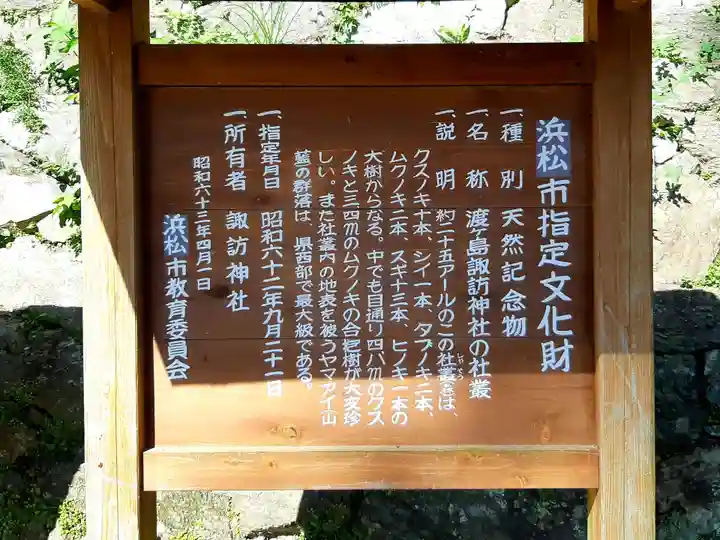 浜松市指定文化財
一、種別 天然記念物
一、名称 渡ヶ島諏訪神社の社叢
一、説明 約二十五アールのこの社叢は、
しゃそう
クスノキ十本、シイ一本、タブノキ二本、
ムクノキ二本、スギ十三本、ヒノキ一本の
大樹からなる。中でも目通り四八mのクス
ノキと三四mのムクノキの合着樹が大変珍
しい。また社叢内の地表を被うヤマアイ山
藍の群落は、県西部で最大級である。
一、指定年月日 昭和六十二年九月二十一日
一、所有者 諏訪神社
昭和六十三年四月一日
浜松市教育委員会